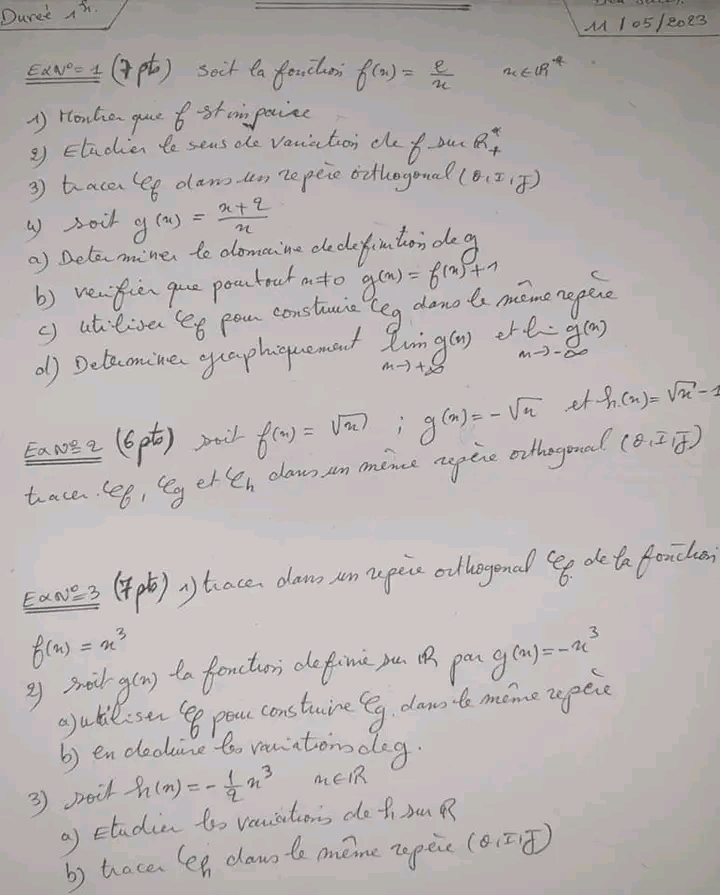 Dureé 1h.
11/05/2023
ExN°=1 (7pts) soit la fonction f(x) = 2/x x∈ℝ*
1) Montrer que f st impaire
2) Etudier le sens de variation de f sur ℝ*+
3) tracer Cf dans un repère orthogonal (O,I,J)
4) soit g(x) = (x+2)/x
a) Determiner le domaine de definition de g
b) verifier que pour tout x≠0 g(x) = f(x)+1
c) utiliser Cf pour construire Cg dans le même repère
d) Determiner graphiquement lim x→+∞ g(x) et lim x→-∞ g(x)
ExN°=2 (6pts) soit f(x) = √x ; g(x) = -√x et h(x) = √x - 1
tracer Cf, Cg et Ch dans un même repère orthogonal (O,I,J)
ExN°=3 (7pts) 1) tracer dans un repère orthogonal Cf de la fonction
f(x) = x³
2) soit g(x) la fonction definie sur ℝ par g(x) = -x³
a) utiliser Cf pour construire Cg dans le même repère
b) en deduire les variations de g.
3) soit h(x) = -1/2 x³ x∈ℝ
a) Etudier les variations de h sur ℝ
b) tracer Ch dans le même repère (O,I,J)